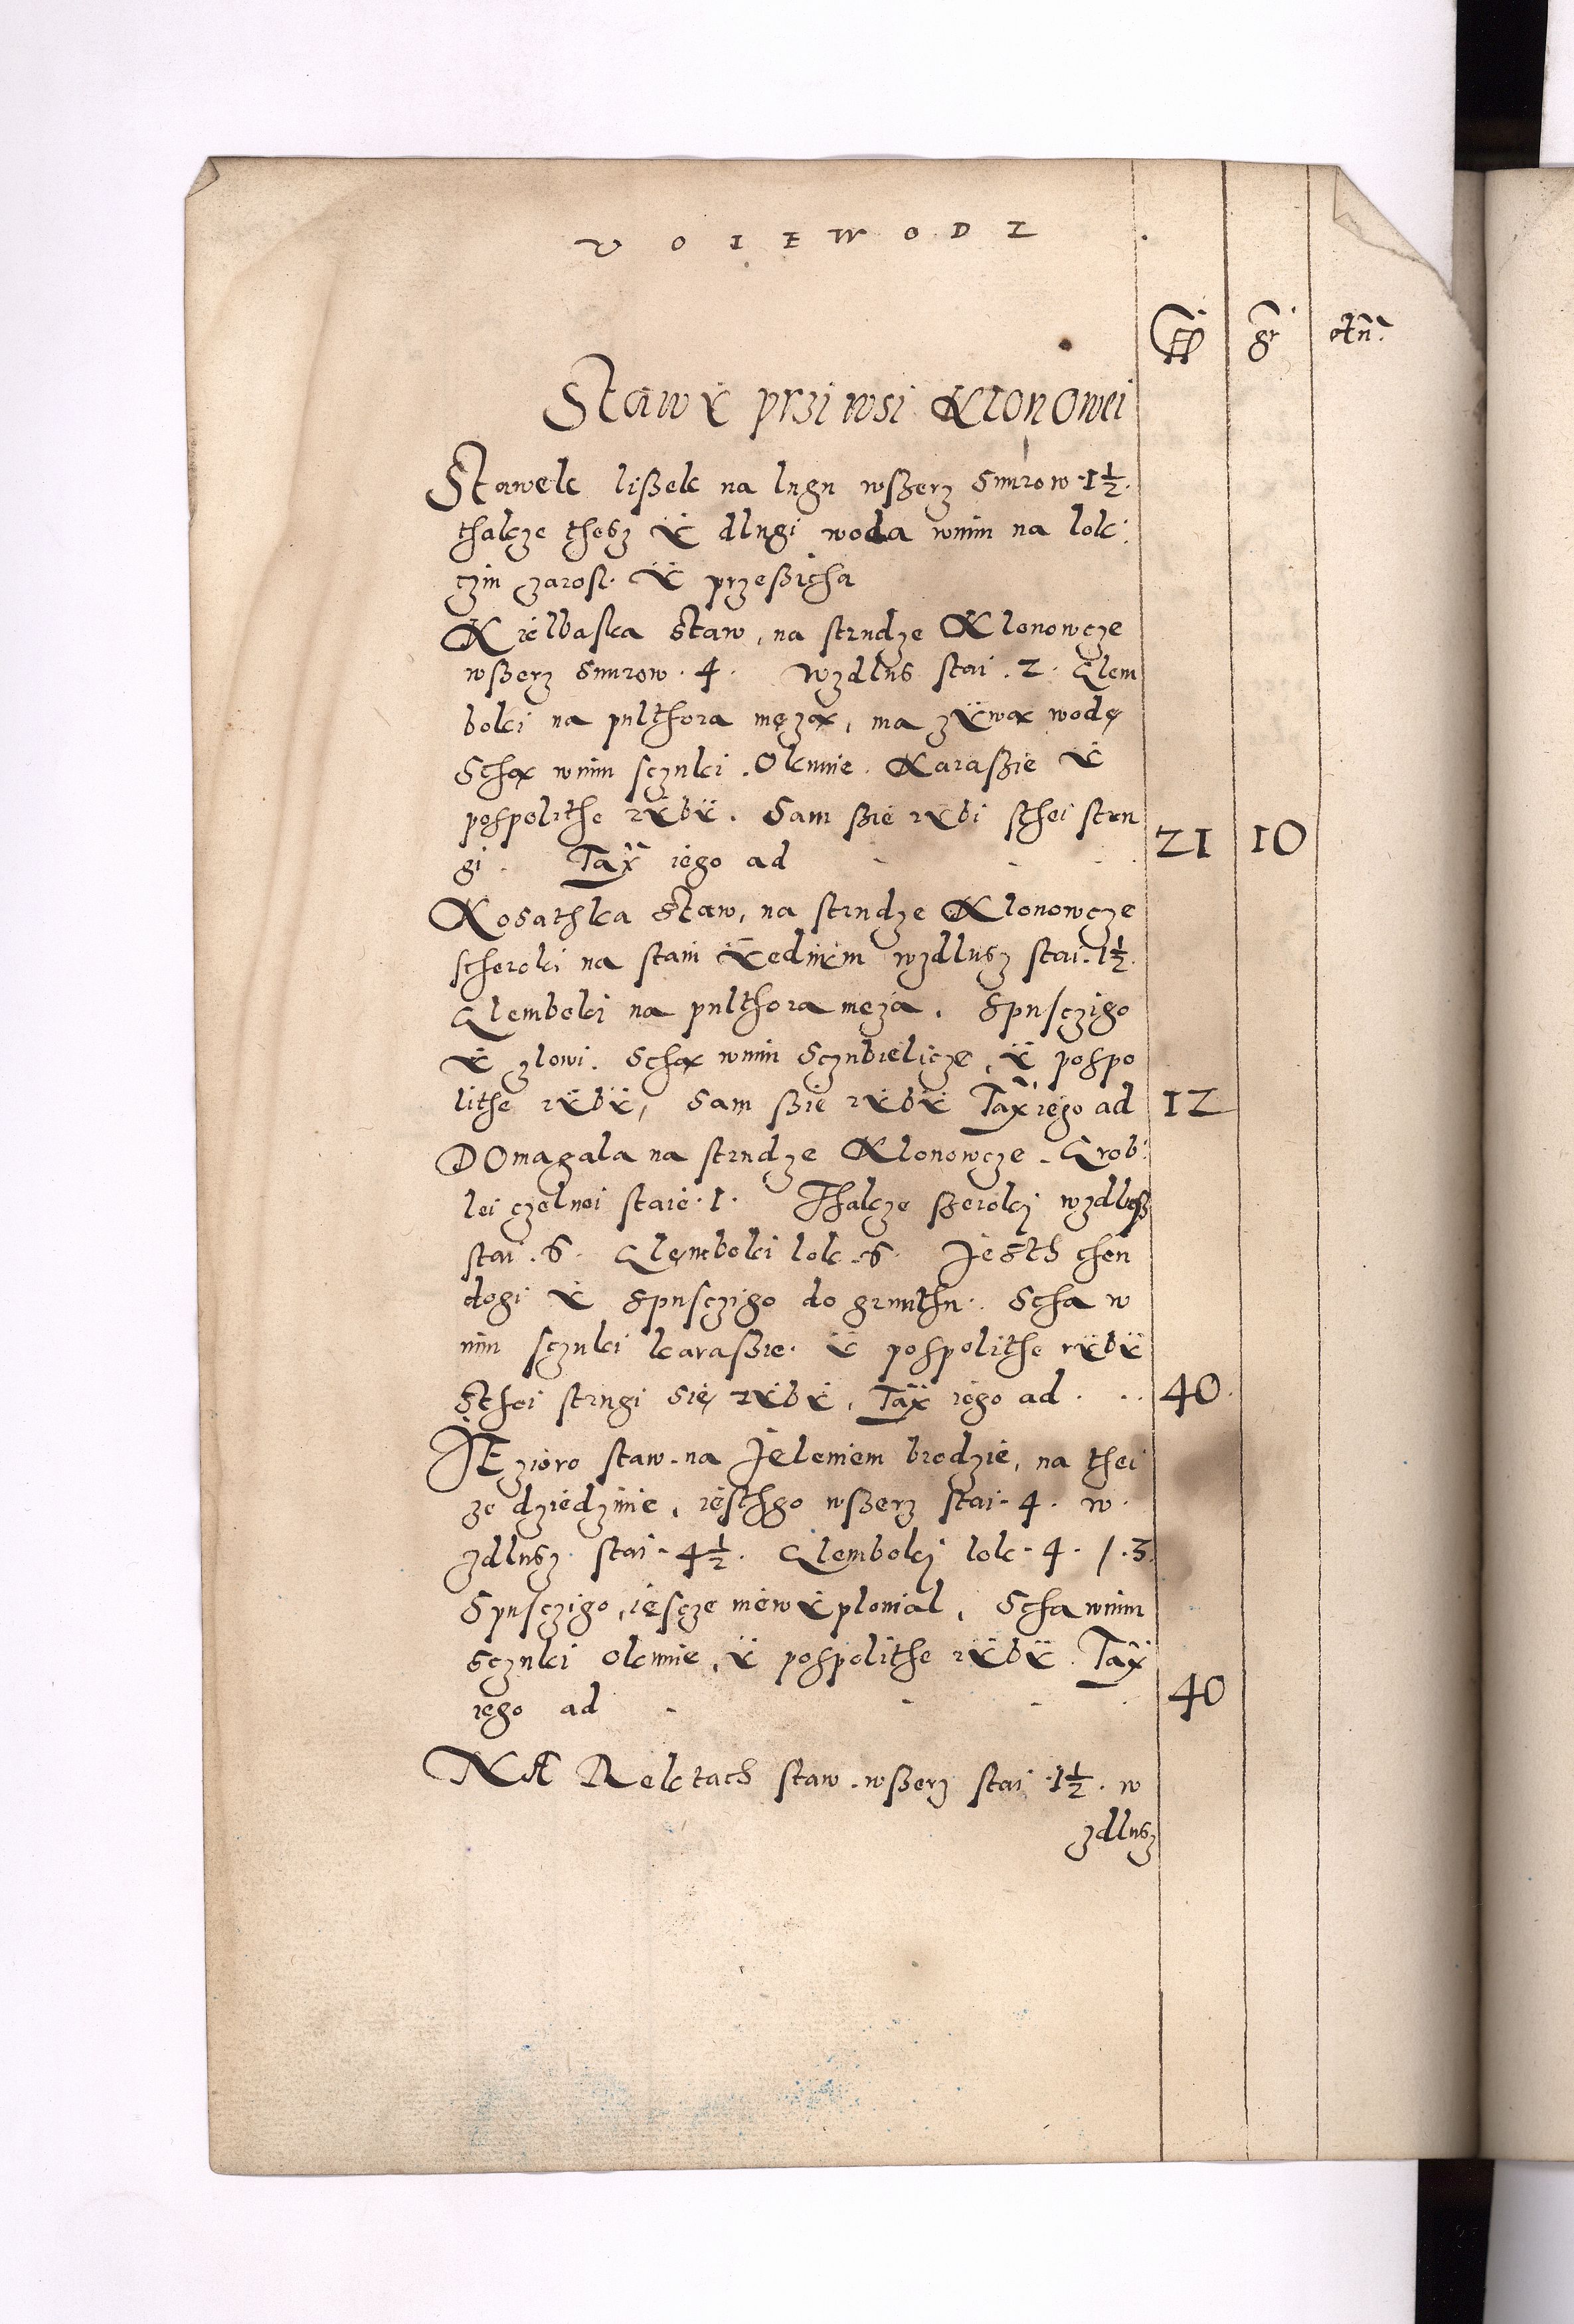 VOIEWODZ
ffl gr den.
Stawÿ przi wsi Klonowei
Stawek lißek na lugu wßerz snurow 1½.
thakze thesz ÿ dlugi woda wnim na lok:
czim zarosl. ÿ przeßicha
Kielbaska staw, na strudze Klonowcze
wßerz snurow. 4. Wzdlus stai. 2. Glem
boki na pulthora męza, ma zÿwa wodę
Scha wnim sczuki. Oknnie. Karaßie ÿ
pospolithe rÿbÿ. Sam ßie rÿbi sthei stru
gi. Tax iego ad 21 10
Kosathka staw, na strudze Klonowcze
scheroki na staiu ÿednÿm wzdlusz stai. 1½.
Glemboki na pulthora meza. Spusczigo
ÿ zlowi. Scha wnim Sczubielicze, ÿ pospo
lithe rÿbÿ, Sam ßie rÿbÿ Tax iego ad 12
DOmagala na strudze Klonowcze. Grob:
lei czelnei staie. 1. Thakze ßerokj wzdlusz
stai. 6. Glemboki lok. 6. Jesth chen
dogi ÿ Spusczigo do grunthu. Scha w
nim sczuki karaßie. ÿ pospolithe rÿbÿ
Sthei strugi się rÿbÿ. Tax iego ad 40.
JEzioro staw. na Jeleniem brodzie, na thei
ze dziedzinie, iesthgo wßerz stai. 4. w.
zdlusz stai. 4½. Glembokj lok. 4. /. 3.
Spusczigo, iescze niewÿplonial, Scha wnim
sczuki oknnie, ÿ pospolithe rÿbÿ. Tax
iego ad 40
NA Rektach staw. wßerz stai 1½. w
zdlusz